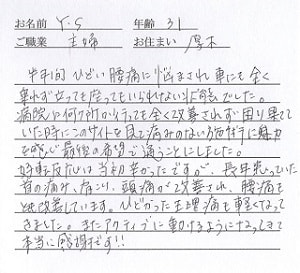 お名前 Y・S 年齢 31
ご職業 主婦 お住まい 厚木
半年間 ひどい腰痛に悩まされ 車にも全く
乗れず 立っても座ってもいられない状態でした。
病院に何ヶ所か行っても全く改善されず 困り果て
ていた時にこのサイトを見て 痛みのない方法に魅力
を感じ 最後の希望で通うことにしました。
好転反応は当初辛かったですが、長年患っていた
首の痛み、肩こり、頭痛が改善され、腰痛も
改善しています。ひどかった生理痛も軽くなって
きました。またアクティブに動けるようになってきて
本当に感謝です!!